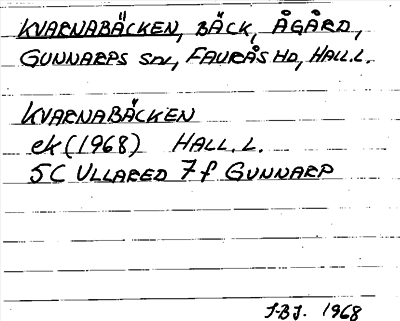 KVARNABÄCKEN, BÄCK, ÅGÅRD,
GUNNARPS SDN, FAURÅS HD, HALL.L.
KVARNABÄCKEN
ek (1968) HALL.L.
5C ULLARED 7f GUNNARP
1968